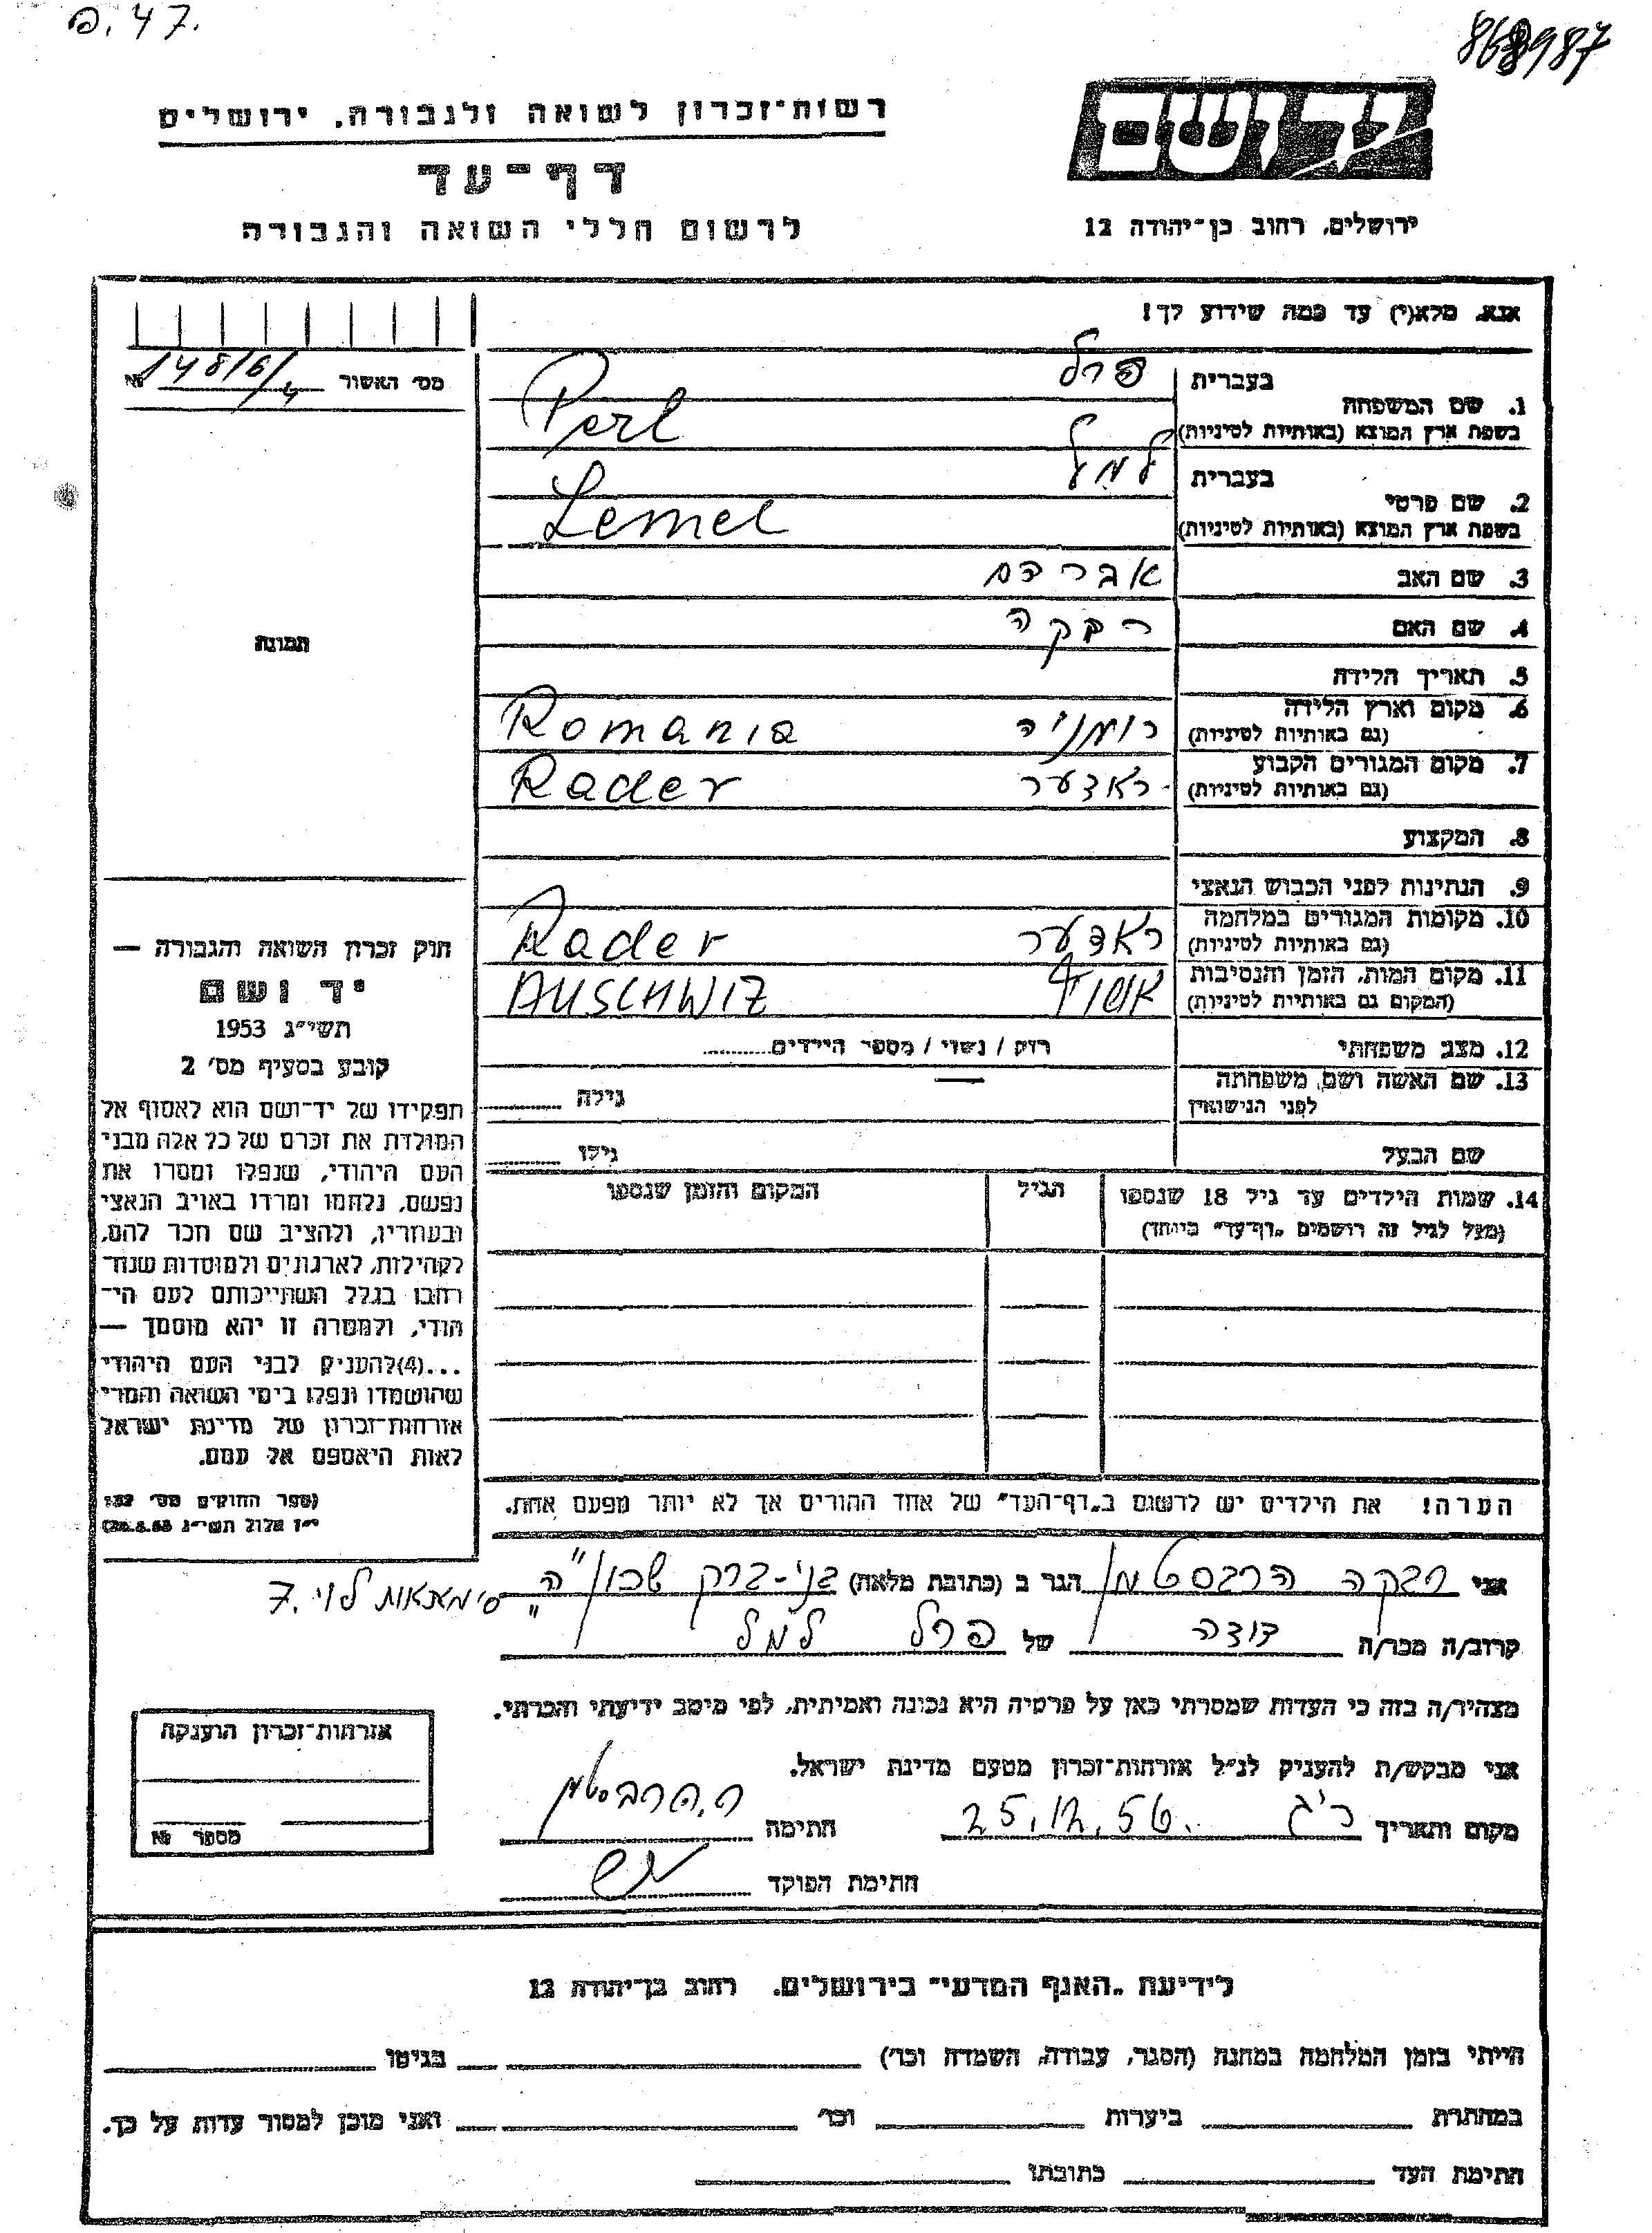 פ. 47.
868987
רשות־זכרון לשואה ולגבורה, ירושלים
יד ושם
דף־עד
לרשום חללי השואה והגבורה
ירושלים, רחוב בן־יהודה 12
אנא, מלא(י) עד כמה שידוע לך!
מס׳ האשור 148/6/4 №
בעברית פרל
1. שם המשפחה
בשפת ארץ המוצא (באותיות לטיניות) Perl
בעברית למל
2. שם פרטי
בשפת ארץ המוצא (באותיות לטיניות) Lemel
3. שם האב אברהם
4. שם האם רבקה
תמונה
5. תאריך הלידה
6. מקום וארץ הלידה רומניה Romania
(גם באותיות לטיניות)
7. מקום המגורים הקבוע ראדער Rader
(גם באותיות לטיניות)
8. המקצוע
9. הנתינות לפני הכבוש הנאצי
10. מקומות המגורים במלחמה ראדער Rader
(גם באותיות לטיניות)
11. מקום המות, הזמן והנסיבות AUSCHWIZ
(המקום גם באותיות לטיניות)
12. מצב משפחתי רוק / נשוי / מספר הילדים
13. שם האשה ושם משפחתה
לפני הנישואין גילה
שם הבעל גילו
14. שמות הילדים עד גיל 18 שנספו הגיל המקום והזמן שנספו
(מעל לגיל זה רושמים „דף־עד" מיוחד)
חוק זכרון השואה והגבורה —
יד ושם
תשי״ג 1953
קובע בסעיף מס׳ 2
תפקידו של יד־ושם הוא לאסוף אל
המולדת את זכרם של כל אלה מבני
העם היהודי, שנפלו ומסרו את
נפשם, נלחמו ומרדו באויב הנאצי
ובעוזריו, ולהציב שם וזכר להם,
לקהילות, לארגונים ולמוסדות שנח־
רבו בגלל השתייכותם לעם הי־
הודי, ולמטרה זו יהא מוסמך —
...(4)להעניק לבני העם היהודי
שהושמדו ונפלו בימי השואה והמרי
אזרחות־זכרון של מדינת ישראל
לאות היאספם אל עמם.
(ספר החוקים מס׳ 132
י״ז אלול תשי״ג 28.8.53)
הערה! את הילדים יש לרשום ב„דף־העד" של אחד ההורים אך לא יותר מפעם אחת.
אני רבקה הרבסטמן הגר ב (כתובת מלאה) בני-ברק שכון "ה"
לוי 7.
קרוב/ה מכר/ה דודה של פרל למל
מצהיר/ה בזה כי העדות שמסרתי כאן על פרטיה היא נכונה ואמיתית, לפי מיטב ידיעתי והכרתי.
אני מבקש/ת להעניק לנ״ל אזרחות־זכרון מטעם מדינת ישראל.
מקום ותאריך ר״ג 25.12.56. חתימה ר. הרבסטמן
חתימת הפוקד
אזרחות־זכרון הוענקה
מספר №
לידיעת „האגף המדעי" בירושלים, רחוב בן־יהודה 12
הייתי בזמן המלחמה במחנה (הסגר, עבודה, השמדה וכד׳) בגיטו
במחתרת ביערות וכד׳ ואני מוכן למסור עדות על כך.
חתימת העד כתובתו